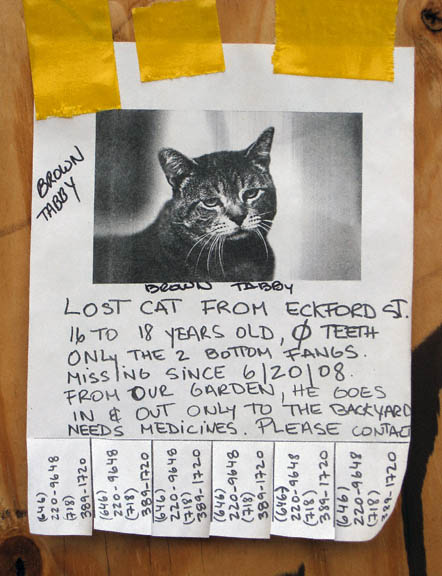 BROWN
TABBY
BROWN TABBY
LOST CAT FROM ECKFORD ST.
16 TO 18 YEARS OLD, Ø TEETH
ONLY THE 2 BOTTOM FANGS.
MISSING SINCE 6/20/08.
FROM OUR GARDEN, HE GOES
IN & OUT ONLY TO THE BACKYARD
NEEDS MEDICINES. PLEASE CONTACT
(646)
220-9648
(718)
389-1720
(646)
220-9648
(718)
389-1720
(646)
220-9648
(718)
389-1720
(646)
220-9648
(718)
389-1720
(646)
220-9648
(718)
389-1720
(646)
220-9648
(718)
389-1720